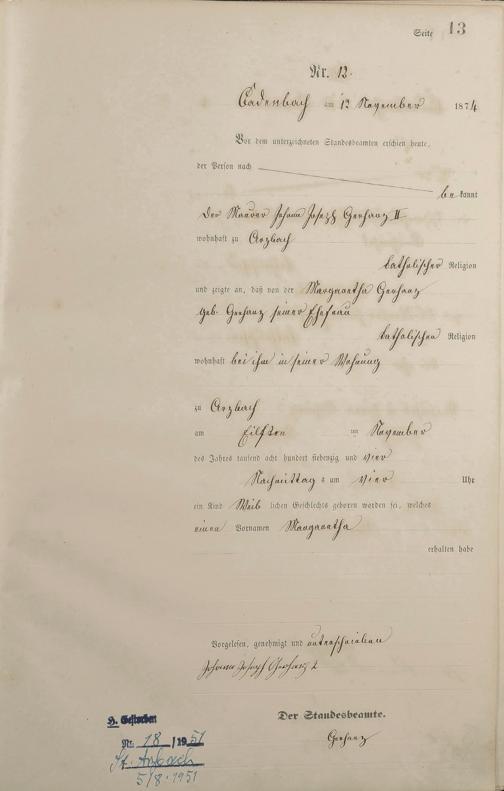 Seite 13
Nr. 12.
Cadenbach am 12 November 1874
Vor dem unterzeichneten Standesbeamten erschien heute,
der Person nach
be kannt
Der Maurer Johann Joseph Gerharz II
wohnhaft zu Arzbach
katholischer Religion
und zeigte an, daß von der Margaretha Gerharz
geb. Gerharz seiner Ehefrau
katholischen Religion
wohnhaft bei ihm in seiner Wohnung
zu Arzbach
am Eilften im November
des Jahres tausend acht hundert siebenzig und vier
Nachmittags um vier Uhr
ein Kind Weib lichen Geschlechts geboren worden sei, welches
einen Vornamen Margaretha
erhalten habe
Vorgelesen, genehmigt und unterschrieben
Johann Joseph Gerharz 2
Der Standesbeamte.
Gerharz
H. Gestorben
Nr. 18 / 1951
St. Arzbach
5/8.1951